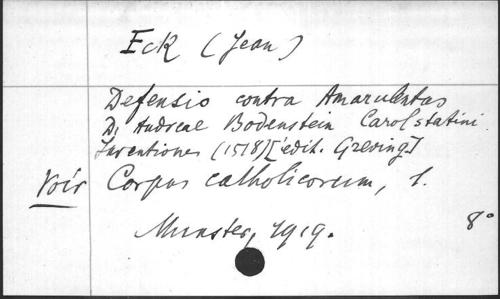 Eck (Jean)
Defensio contra Amarulentas
D. Andreae Bodenstein Carolstatini
Inventiones (1518) [édit. Greving]
Voir Corpus catholicorum, 1.
Munster, 1919. 8°